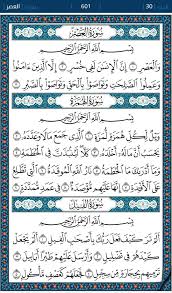 العصر 601 30
سُورَةُ العَصْرِ
بِسْمِ اللَّهِ الرَّحْمَٰنِ الرَّحِيمِ
وَالْعَصْرِ ١ إِنَّ الْإِنسَٰنَ لَفِي خُسْرٍ ٢ إِلَّا الَّذِينَ ءَامَنُوا
وَعَمِلُوا الصَّٰلِحَٰتِ وَتَوَاصَوْا بِالْحَقِّ وَتَوَاصَوْا بِالصَّبْرِ ٣
سُورَةُ الهُمَزَةِ
بِسْمِ اللَّهِ الرَّحْمَٰنِ الرَّحِيمِ
وَيْلٌ لِّكُلِّ هُمَزَةٍ لُّمَزَةٍ ١ الَّذِي جَمَعَ مَالًا وَعَدَّدَهُ ٢
يَحْسَبُ أَنَّ مَالَهُ أَخْلَدَهُ ٣ كَلَّا لَيُنبَذَنَّ فِي الْحُطَمَةِ ٤
وَمَا أَدْرَىٰكَ مَا الْحُطَمَةُ ٥ نَارُ اللَّهِ الْمُوقَدَةُ ٦ الَّتِي تَطَّلِعُ
عَلَى الْأَفْـِٔدَةِ ٧ إِنَّهَا عَلَيْهِم مُّؤْصَدَةٌ ٨ فِي عَمَدٍ مُّمَدَّدَةٍ ٩
سُورَةُ الفِيلِ
بِسْمِ اللَّهِ الرَّحْمَٰنِ الرَّحِيمِ
أَلَمْ تَرَ كَيْفَ فَعَلَ رَبُّكَ بِأَصْحَٰبِ الْفِيلِ ١ أَلَمْ يَجْعَلْ
كَيْدَهُمْ فِي تَضْلِيلٍ ٢ وَأَرْسَلَ عَلَيْهِمْ طَيْرًا أَبَابِيلَ ٣
تَرْمِيهِم بِحِجَارَةٍ مِّن سِجِّيلٍ ٤ فَجَعَلَهُمْ كَعَصْفٍ مَّأْكُولٍ ٥